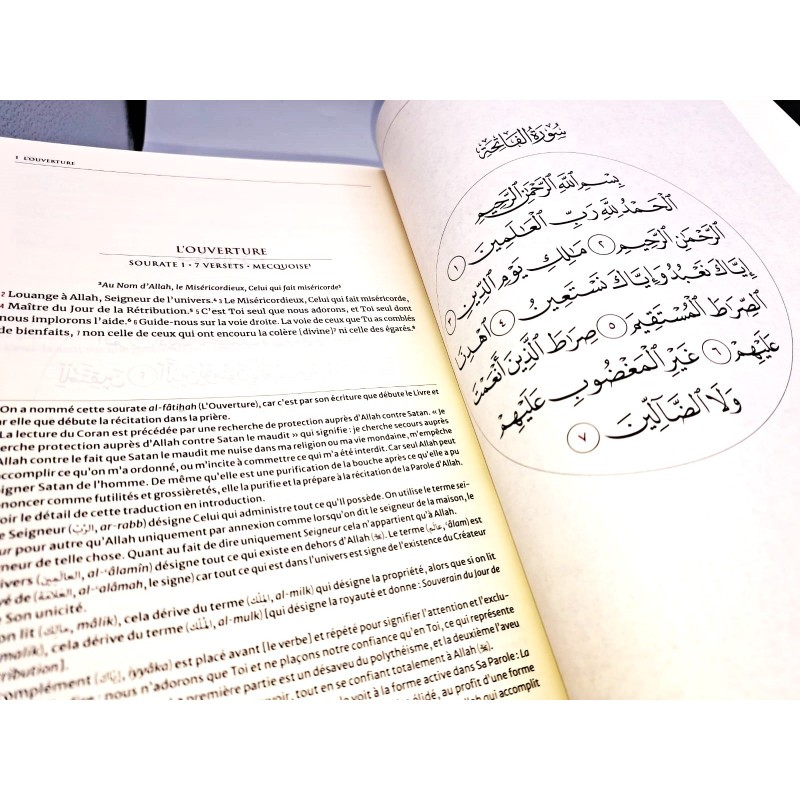 1 L'OUVERTURE
L'OUVERTURE
SOURATE 1 • 7 VERSETS • MECQUOISE¹
³Au Nom d'Allah, le Miséricordieux, Celui qui fait miséricorde³
2 Louange à Allah, Seigneur de l'univers.⁴ 3 Le Miséricordieux, Celui qui fait miséricorde,
4 Maître du Jour de la Rétribution.⁵ 5 C'est Toi seul que nous adorons, et Toi seul dont
nous implorons l'aide.⁶ 6 Guide-nous sur la voie droite. La voie de ceux que Tu as comblés
de bienfaits, 7 non celle de ceux qui ont encouru la colère [divine]⁷ ni celle des égarés.⁸
On a nommé cette sourate al-fâtiḥah (L'Ouverture), car c'est par son écriture que débute le Livre et
par elle que débute la récitation dans la prière.
La lecture du Coran est précédée par une recherche de protection auprès d'Allah contre Satan. « Je
cherche protection auprès d'Allah contre Satan le maudit » qui signifie : je cherche secours auprès
d'Allah contre le fait que Satan le maudit me nuise dans ma religion ou ma vie mondaine, m'empêche
d'accomplir ce qu'on m'a ordonné, ou m'incite à commettre ce qui m'a été interdit. Car seul Allah peut
éloigner Satan de l'homme. De même qu'elle est une purification de la bouche après ce qu'elle a pu
prononcer comme futilités et grossièretés, elle la purifie et la prépare à la récitation de la Parole d'Allah.
Voir le détail de cette traduction en introduction.
Le Seigneur (الرَّبّ, ar-rabb) désigne Celui qui administre tout ce qu'Il possède. On utilise le terme sei-
gneur pour autre qu'Allah uniquement par annexion comme lorsqu'on dit le seigneur de la maison, le
seigneur de telle chose. Quant au fait de dire uniquement Seigneur cela n'appartient qu'à Allah.
univers (العالمين, al-ʿâlamîn) désigne tout ce qui existe en dehors d'Allah (ﷻ). Le terme (عالم, ʿâlam) est
dérivé de (العلامة, al-ʿalâmah, le signe) car tout ce qui est dans l'univers est signe de l'existence du Créateur
de Son unicité.
on lit (مالك, mâlik), cela dérive du terme (المِلْك, al-milk) qui désigne la propriété, alors que si on lit
malik), cela dérive du terme (المُلْك, al-mulk) [qui désigne la royauté et donne : Souverain du Jour de
Rétribution].
complément (إيّاك, iyyâka) est placé avant [le verbe] et répété pour signifier l'attention et l'exclu-
: nous n'adorons que Toi et ne plaçons notre confiance qu'en Toi, ce qui représente
première partie est un désaveu du polythéisme, et la deuxième l'aveu
tout en se confiant totalement à Allah (ﷻ).
voit à la forme active dans Sa Parole : La
élidé, au profit d'une forme
qui accomplit
سُورَةُ الفَاتِحَة
بِسْمِ اللَّهِ الرَّحْمَٰنِ الرَّحِيمِ
الْحَمْدُ لِلَّهِ رَبِّ الْعَالَمِينَ ١
الرَّحْمَٰنِ الرَّحِيمِ ٢ مَلِكِ يَوْمِ الدِّينِ ٣
إِيَّاكَ نَعْبُدُ وَإِيَّاكَ نَسْتَعِينُ ٤ اهْدِنَا
الصِّرَاطَ الْمُسْتَقِيمَ ٥ صِرَاطَ الَّذِينَ أَنْعَمْتَ
عَلَيْهِمْ ٦ غَيْرِ الْمَغْضُوبِ عَلَيْهِمْ
وَلَا الضَّالِّينَ ٧